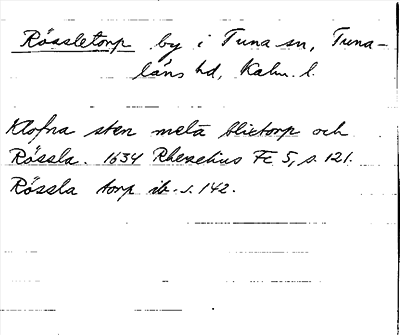 Rössletorp by i Tuna sn, Tuna-
läns hd, Kalm. l.
Klofna sten mella Blietorp och
Rössla. 1634 Rhezelius Fc 5, s. 121.
Rössla torp ib. s. 142.